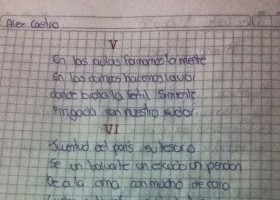 Alex Castro
V
En las aulas formamos la mente
En los campos hacemos la voz
donde brota la fertil simiente
irrigada con nuestro sudor.
VI
Juventud del país su tesoro
Se un baluarte un escudo un pendon
De a la cima con mucho de coro